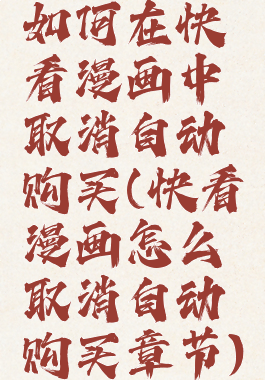 如何在快
看漫画中
取消自动
购买(快看
漫画怎么
取消自动
购买章节)